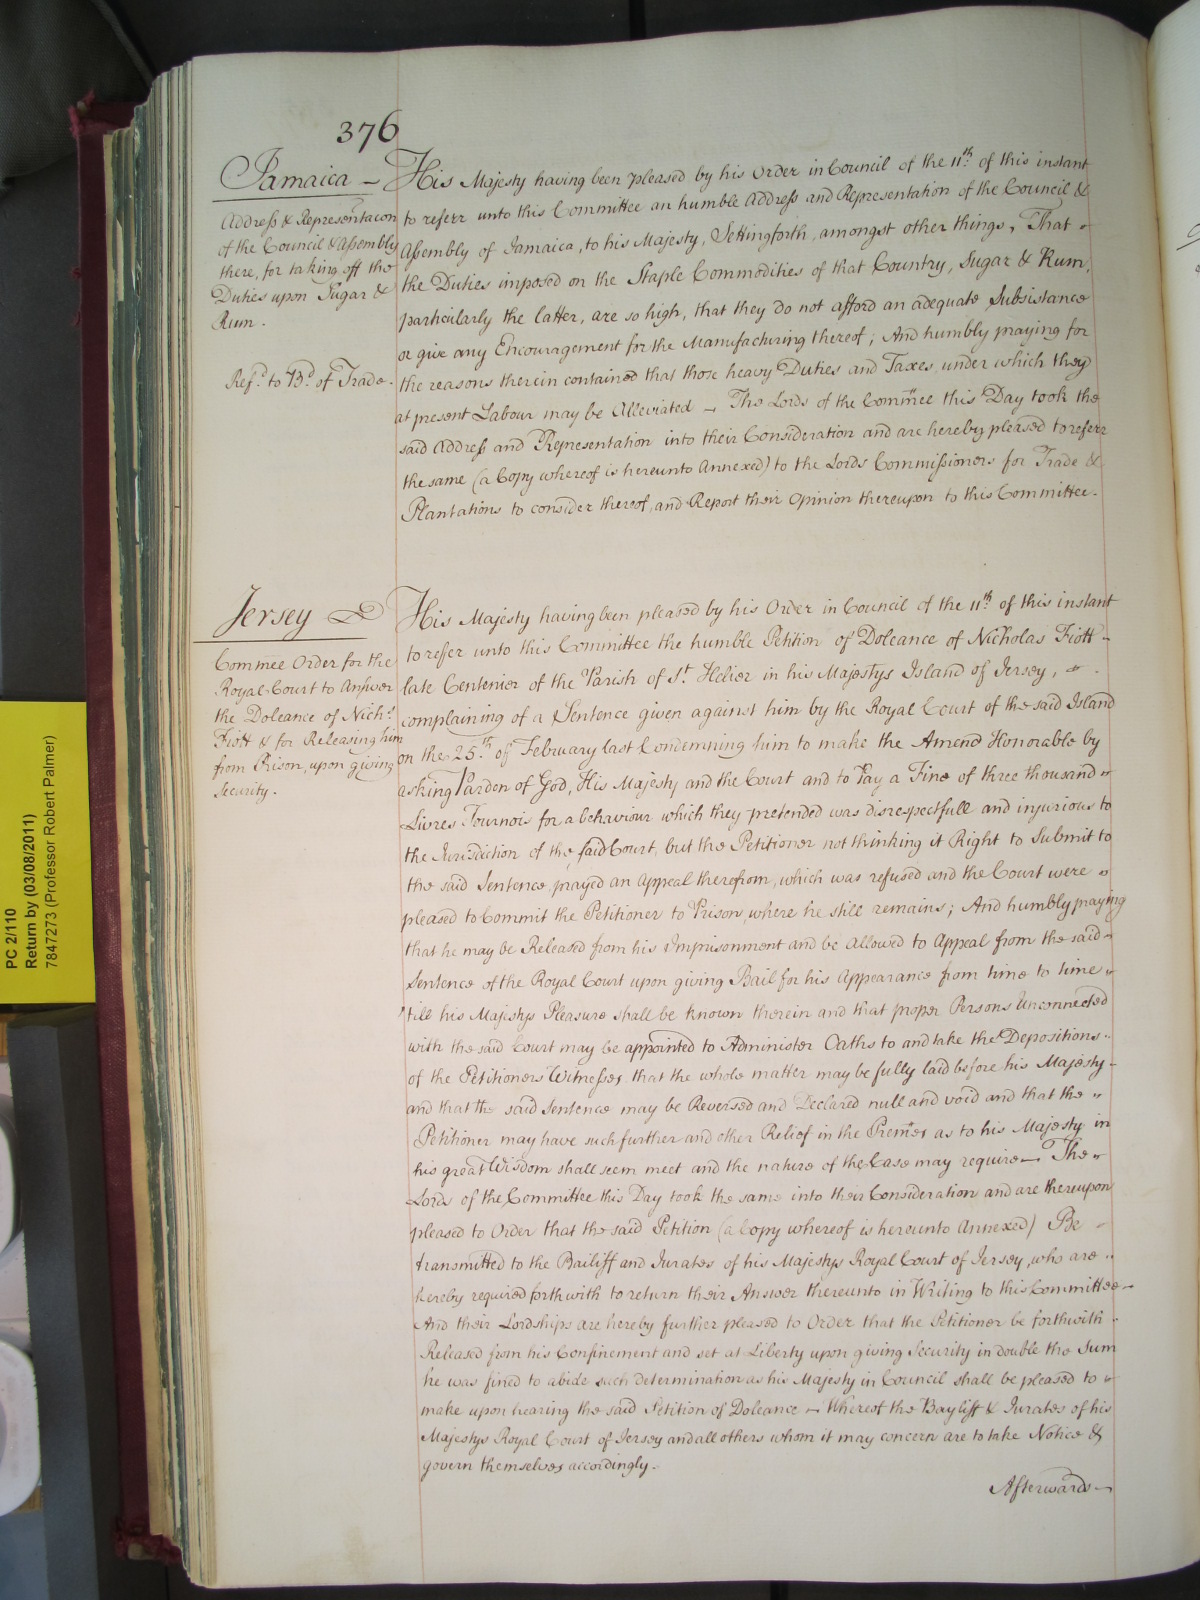 376
Jamaica —
Address & Representacon
of the Council & Assembly
there, for taking off the
Duties upon Sugar &
Rum.
Ref.d to B.d of Trade.
His Majesty having been pleased by his Order in Council of the 11th of this instant
to referr unto this Committee an humble Address and Representation of the Council &
Assembly of Jamaica, to his Majesty, Settingforth, amongst other things, That
the Duties imposed on the Staple Commodities of that Country, Sugar & Rum,
particularly the latter, are so high, that they do not afford an adequate Subsistance
or give any Encouragement for the Manufacturing thereof; And humbly praying for
the reasons therein contained that those heavy Duties and Taxes, under which they
at present Labour may be Alleviated — The Lords of the Commee this Day took the
said Address and Representation into their Consideration and are hereby pleased to referr
the same (a Copy whereof is hereunto Annexed) to the Lords Commissioners for Trade &
Plantations to consider thereof, and Report their Opinion thereupon to this Committee.
Jersey
Commee Order for the
Royal Court to Answer
the Doleance of Nich.s
Fiott & for Releasing him
from Prison, upon giving
Security.
His Majesty having been pleased by his Order in Council of the 11th of this instant
to reffer unto this Committee the humble Petition of Doleance of Nicholas Fiott
late Centenier of the Parish of St. Helier in his Majestys Island of Jersey,
complaining of a Sentence given against him by the Royal Court of the said Island
on the 25th of February last Condemning him to make the Amend Honorable by
asking Pardon of God, His Majesty and the Court and to Pay a Fine of three thousand
Livres Tournois for a behaviour which they pretended was disrespectfull and injurious to
the Jurisdiction of the said Court, but the Petitioner not thinking it Right to Submit to
the said Sentence, prayed an Appeal therefrom, which was refused and the Court were
pleased to Commit the Petitioner to Prison, where he still remains; And humbly praying
that he may be Released from his Imprisonment and be allowed to Appeal from the said
Sentence of the Royal Court upon giving Bail for his Appearance from time to time
till his Majestys Pleasure shall be known therein and that proper Persons Unconnected
with the said Court may be appointed to Administer Oaths to and take the Depositions
of the Petitioners Witnesses that the whole matter may be fully laid before his Majesty
and that the said Sentence may be Reversed and Declared null and void and that the
Petitioner may have such further and other Relief in the Premes as to his Majesty in
his great Wisdom shall seem meet and the nature of the Case may require — The
Lords of the Committee this Day took the same into their Consideration and are thereupon
pleased to Order that the said Petition (a Copy whereof is hereunto Annexed) Be
transmitted to the Bailiff and Jurates of his Majestys Royal Court of Jersey, who are
hereby required forthwith to return their Answer thereunto in Writing to this Committee
And their Lordships are hereby further pleased to Order that the Petitioner be forthwith
Released from his Confinement and set at Liberty upon giving Security in double the Sum
he was fined to abide such determination as his Majesty in Council shall be pleased to
make upon hearing the said Petition of Doleance — Whereof the Bayliff & Jurates of his
Majestys Royal Court of Jersey and all others whom it may concern are to take Notice &
govern themselves accordingly.
Afterwards —
PC 2/110
Return by (03/08/2011)
7847273 (Professor Robert Palmer)